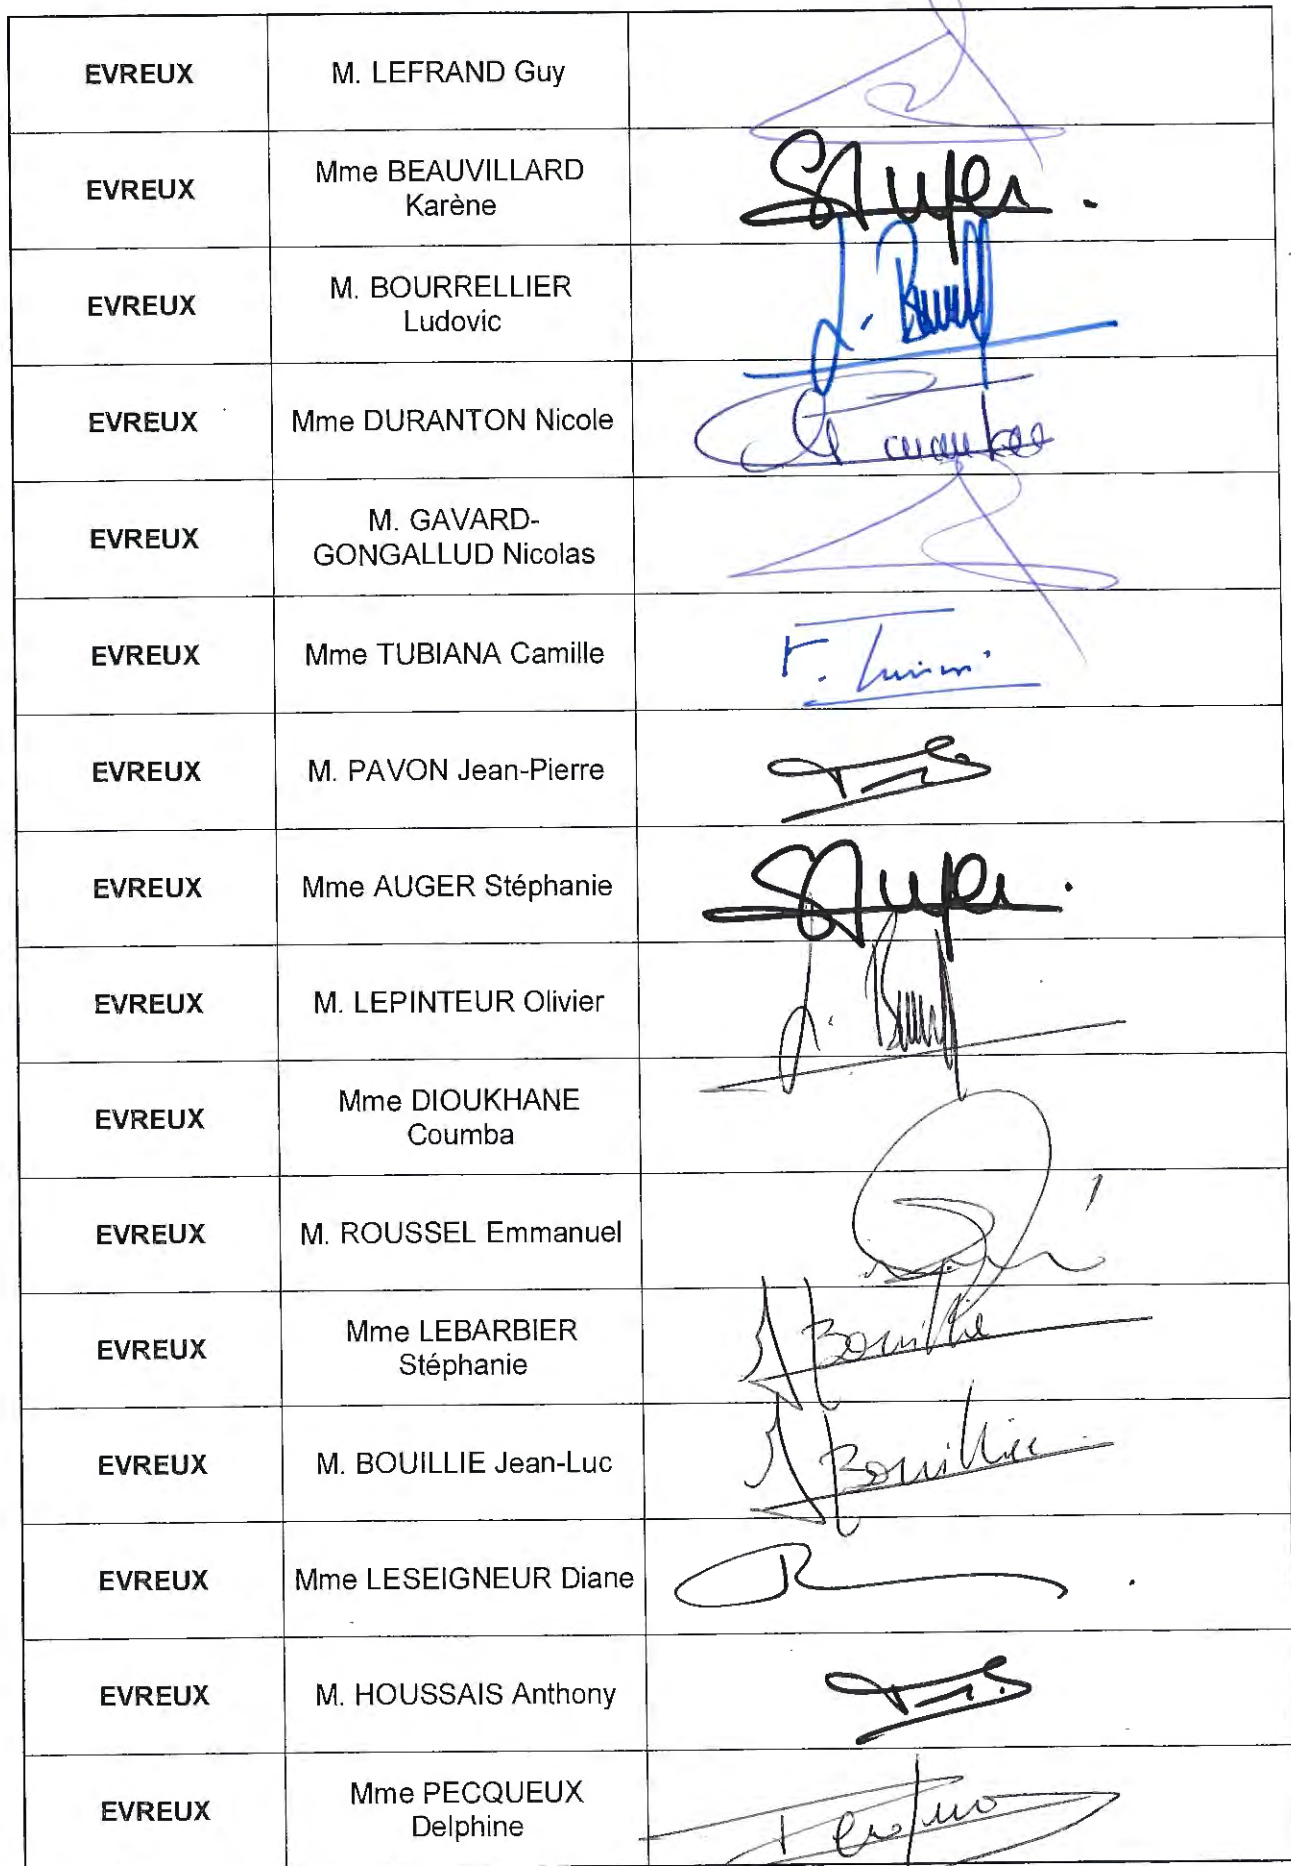 EVREUX M. LEFRAND Guy
EVREUX Mme BEAUVILLARD
Karène
EVREUX M. BOURRELLIER
Ludovic
EVREUX Mme DURANTON Nicole
EVREUX M. GAVARD-
GONGALLUD Nicolas
EVREUX Mme TUBIANA Camille
EVREUX M. PAVON Jean-Pierre
EVREUX Mme AUGER Stéphanie
EVREUX M. LEPINTEUR Olivier
EVREUX Mme DIOUKHANE
Coumba
EVREUX M. ROUSSEL Emmanuel
EVREUX Mme LEBARBIER
Stéphanie
Bouillie
EVREUX M. BOUILLIE Jean-Luc
Bouillie
EVREUX Mme LESEIGNEUR Diane
EVREUX M. HOUSSAIS Anthony
EVREUX Mme PECQUEUX
Delphine